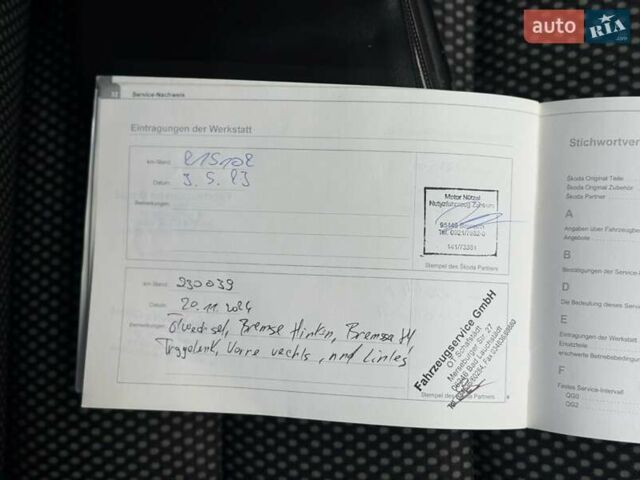 auto RIA.com
32 Service-Nachweis
Eintragungen der Werkstatt
km-Stand: 215102
Datum: 3.5.23
Bemerkungen:
Motor Nützel
Nutzfahrzeug Zentrum
95448 Bayreuth
Tel. 0921/7952-0
Stempel des Škoda Partners
km-Stand: 230039
Datum: 20.11.2024
Bemerkungen: Ölwechsel, Bremse Hinten, Bremse
Traggelenk, Vorne rechts, und Links
Fahrzeugservice GmbH
OT Schafstädt
Merseburger Str. 27
06246 Bad Lauchstädt
Stempel des Škoda Partners
Stichwortver
Škoda Original Teile
Škoda Original Zubehör
Škoda Partner
A
Angaben über Fahrzeugbe
Angebote
B
Bestätigungen der Service-
D
Die Bedeutung dieses Serv
E
Eintragungen der Werkstatt
Ersatzteile
erschwerte Betriebsbedingu
F
Festes Service-Intervall
QG0
QG2